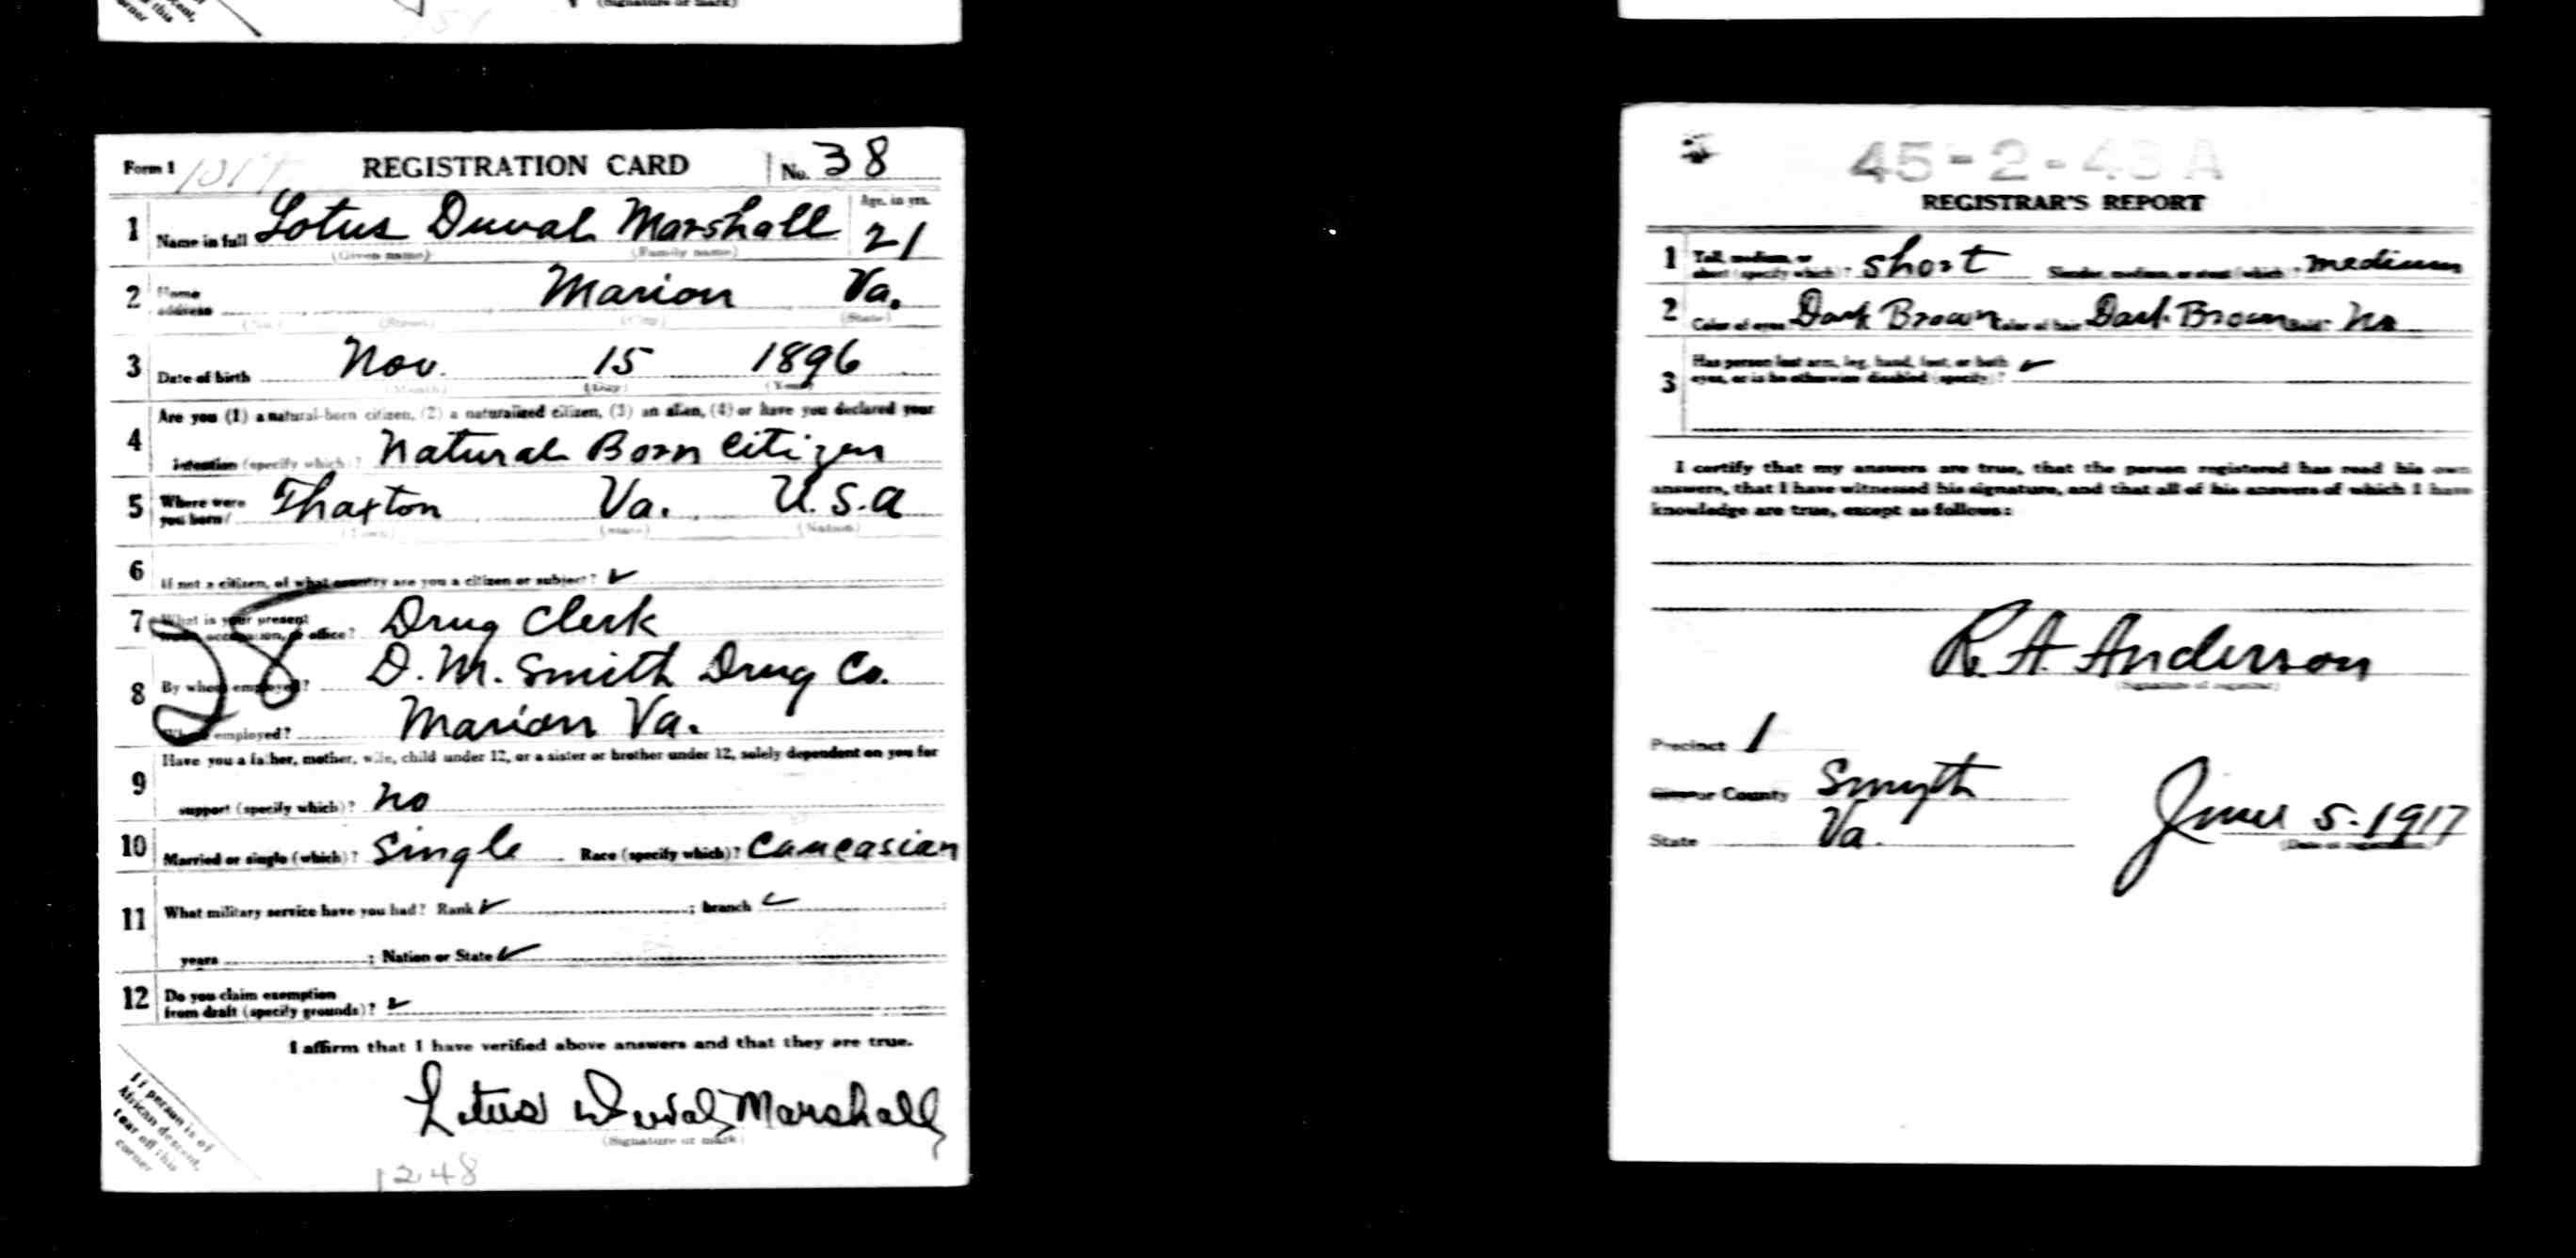 (Signature or mark)
corner
Form 1 REGISTRATION CARD No. 38
1 Name in full Lotus Duval Marshall Age, in yrs. 21
(Given name) (Family name)
2 Home address Marion Va.
(No.) (Street) (City) (State)
3 Date of birth Nov. 15 1896
(Month) (Day) (Year)
4 Are you (1) a natural-born citizen, (2) a naturalized citizen, (3) an alien, (4) or have you declared your
intention (specify which)? Natural Born Citizen
5 Where were you born? Thaxton Va. U.S.A
(Town) (State) (Nation)
6 If not a citizen, of what country are you a citizen or subject?
7 What is your present trade, occupation, or office? Drug Clerk
28
8 By whom employed? D. M. Smith Drug Co.
Where employed? Marion Va.
9 Have you a father, mother, wife, child under 12, or a sister or brother under 12, solely dependent on you for
support (specify which)? no
10 Married or single (which)? Single Race (specify which)? Caucasian
11 What military service have you had? Rank ; branch
years ; Nation or State
12 Do you claim exemption
from draft (specify grounds)?
I affirm that I have verified above answers and that they are true.
Lotus Duval Marshall
(Signature or mark)
If person is of
African descent,
tear off this
corner
1248
45-2-43 A
REGISTRAR'S REPORT
1 Tall, medium, or short (specify which)? short Slender, medium, or stout (which)? medium
2 Color of eyes Dark Brown Color of hair Dark Brown Bald No
3 Has person lost arm, leg, hand, foot, or both
eyes, or is he otherwise disabled (specify)?
I certify that my answers are true, that the person registered has read his own
answers, that I have witnessed his signature, and that all of his answers of which I have
knowledge are true, except as follows:
R. A. Anderson
(Signature of registrar)
Precinct 1
City or County Smyth
State Va. June 5. 1917
(Date of registration)